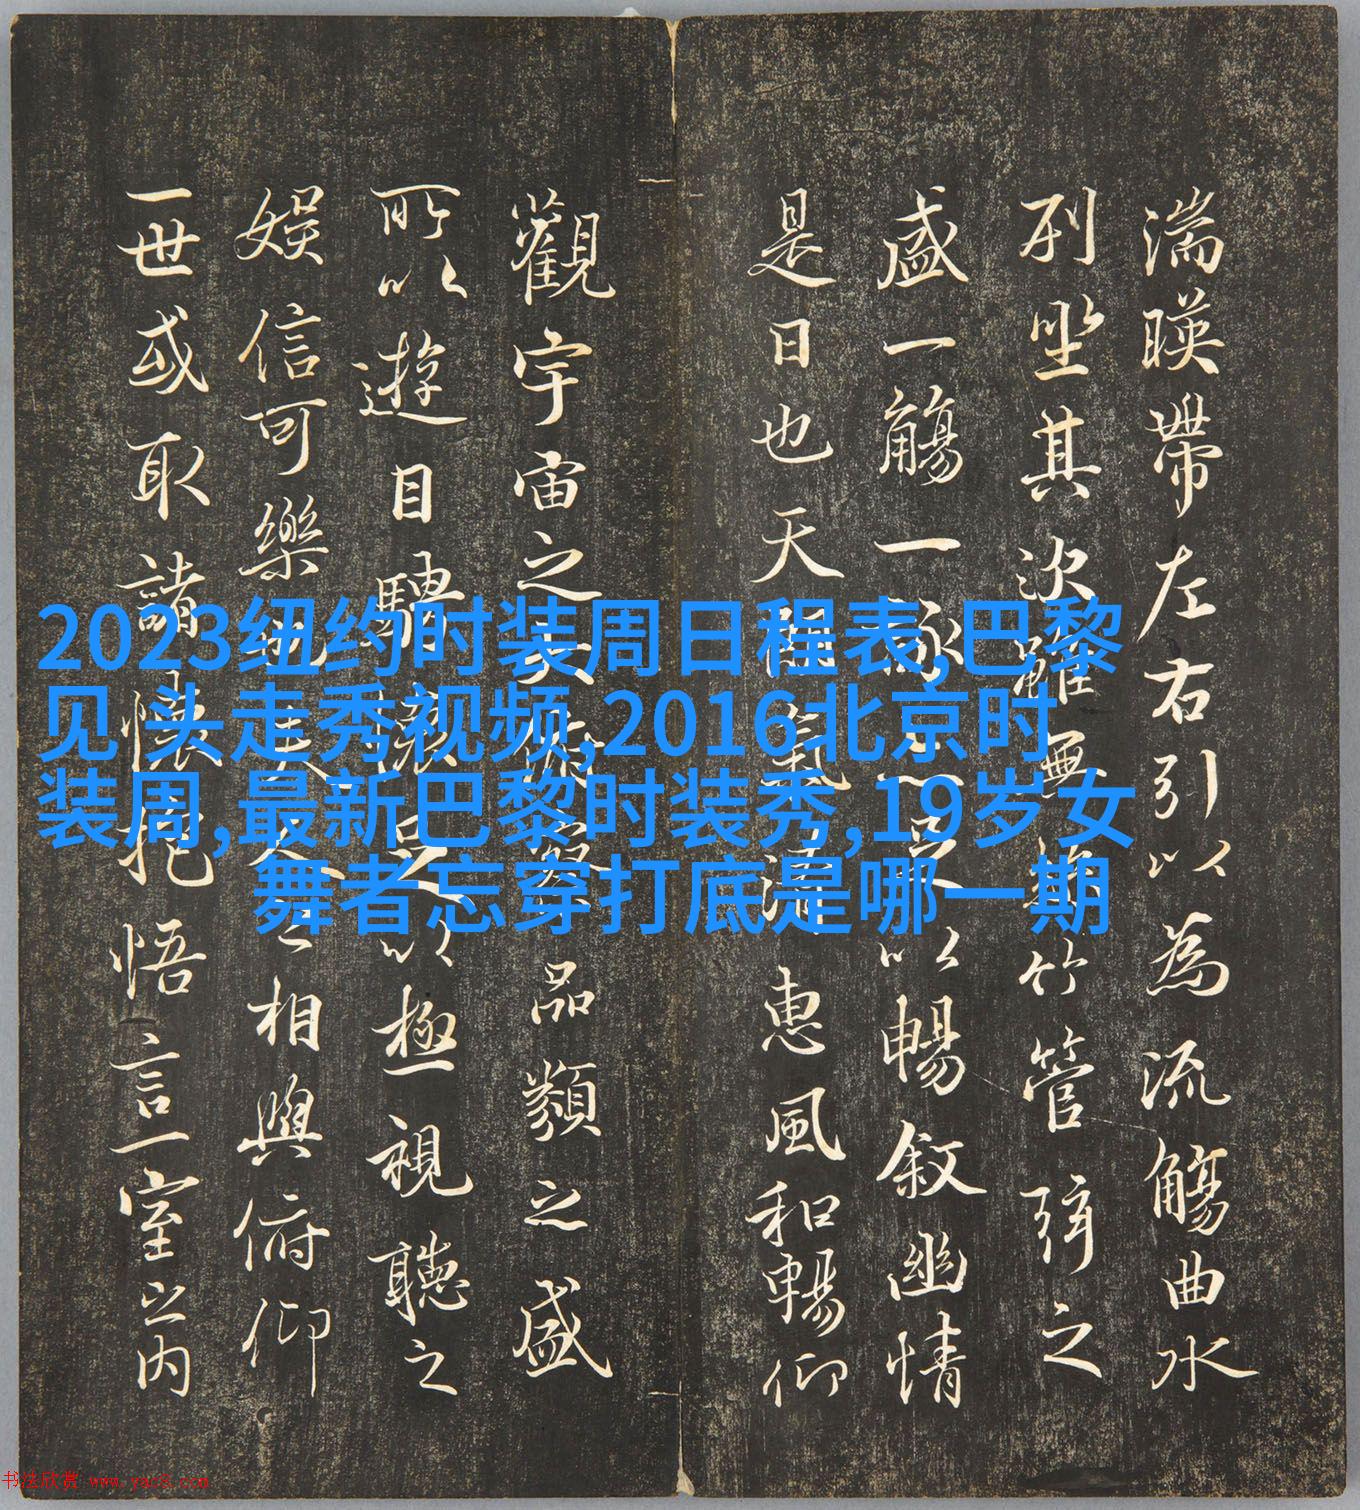 湍暎帶左右引以為流觴曲水
列坐其次雖無絲竹管弦之
盛一觴一詠足以暢敘幽情
是日也天朗氣清惠風和暢仰
觀宇宙之大俯察品類之盛
所以遊目騁懷足以極視聽之
娛信可樂也夫人之相與俯仰
一世或取諸懷抱悟言一室之內
2023纽约时装周日程表,巴黎
见 头走秀视频,2016北京时
装周,最新巴黎时装秀,19岁女
舞者忘穿打底是哪一期
书法欣赏 www.yac8.com